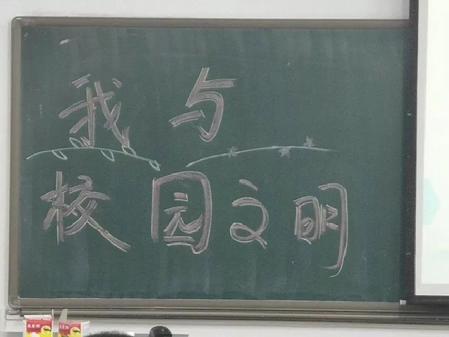 我与
校园文明